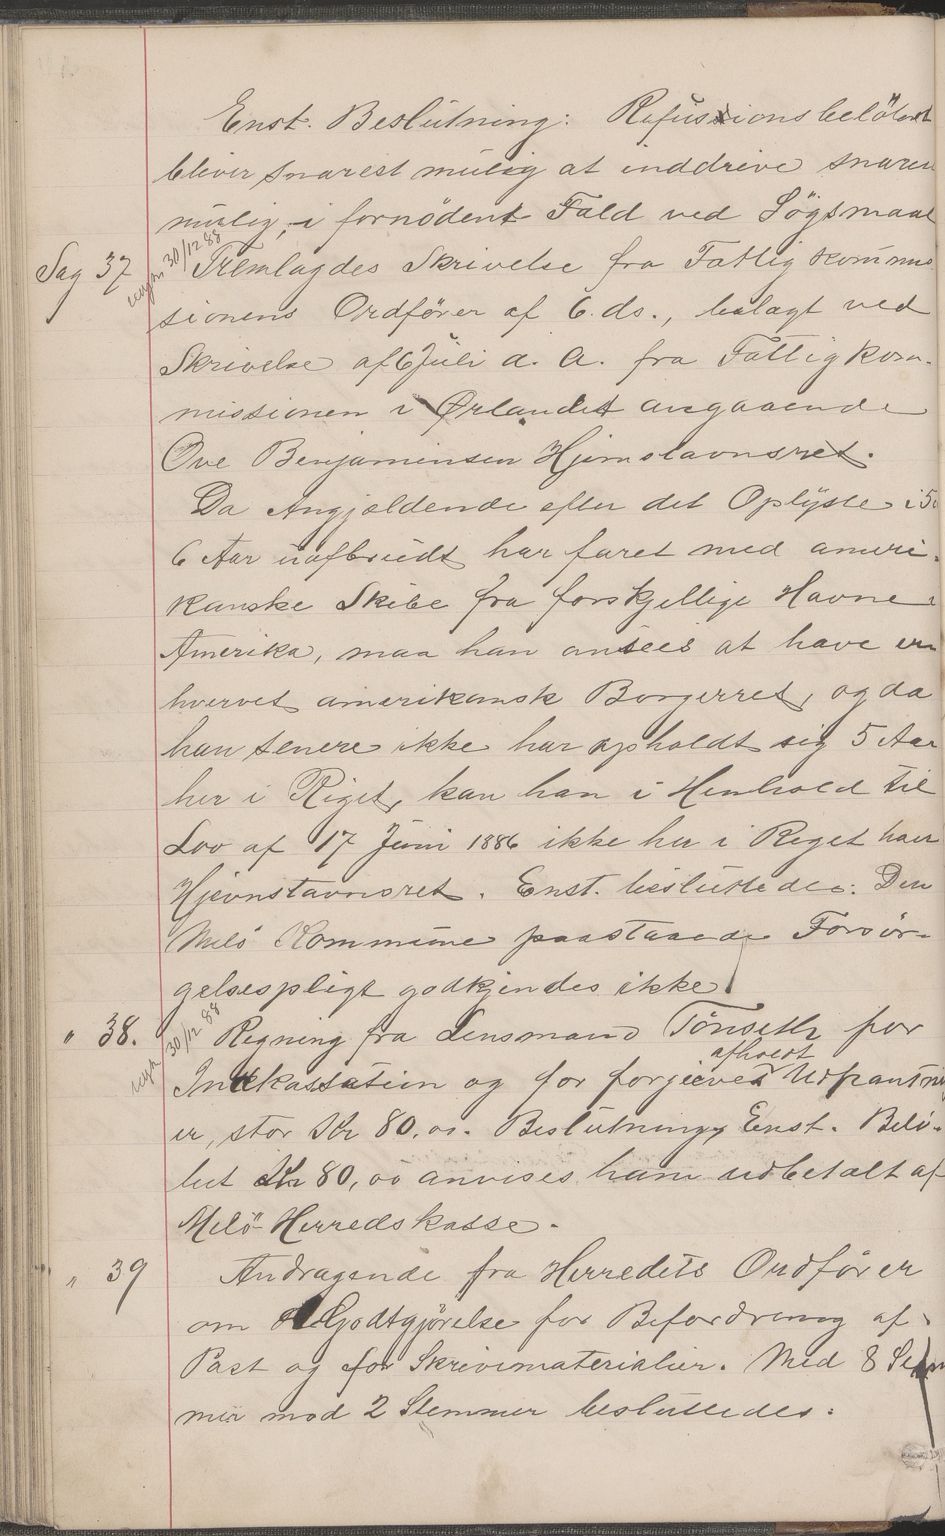 Enst. Beslutning: Refusionsbelöbet
bliver snarest mulig at inddrive snarest
mulig, i fornödent Fald ved Sögsmaal
Sag 37 30/12 88 Fremlagdes Skrivelse fra Fattigkommis
sionens Ordförer af 6. ds., bilagt ved
Skrivelse af 6 Juli d. A. fra Fattigkom-
missionen i Ørlandet angaaende
Ove Benjaminsen Hjemstavnsret.
Da Angjældende efter det Oplyste i 5 à
6 Aar uafbrudt har faret med ameri-
kanske Skibe fra forskjellige Havne i
Amerika, maa han ansees at have er-
hvervet amerikansk Borgerret, og da
han senere ikke har opholdt sig 5 Aar
her i Riget, kan han i Henhold til
Lov af 17 Juni 1886 ikke her i Riget have
Hjemstavnsret. Enst. besluttedes: Den
Melö Kommune paastaaede Forsör-
gelsespligt godkjendes ikke.
" 38. 30/12 88 Regning fra Lensmand Tönseth for
afholdt
Inkassation og for forgjeves Udpantning
er, stor Kr 80,00. Beslutning Enst. Belö-
bet Kr 80,00 anvises ham udbetalt af
Melö Herredskasse.
" 39 Andragende fra Herredets Ordförer
om Godtgjörelse for Befordring af
Post og for Skrivematerialier. Med 8 Stem
mer mod 2 Stemmer besluttedes: